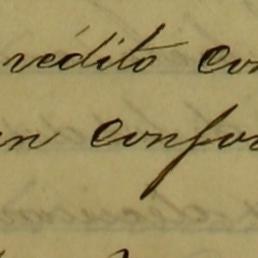 rédito con
en confor